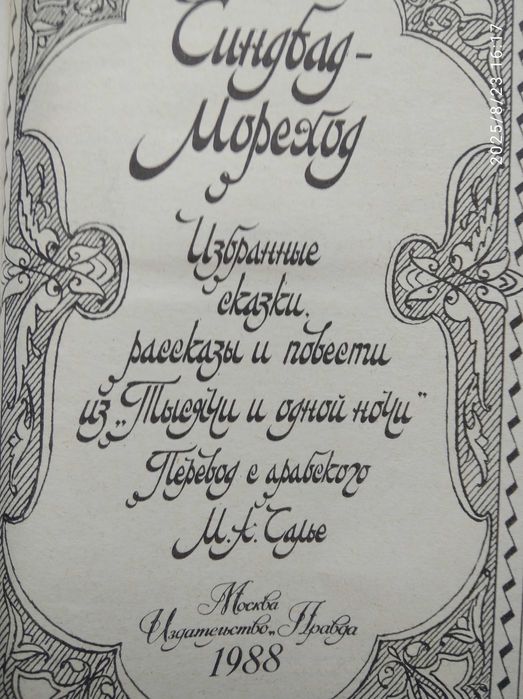 Синдбад-
Мореход
Избранные
сказки,
рассказы и повести
из „Тысячи и одной ночи“
Перевод с арабского
М. А. Салье
Москва
Издательство „Правда
1988
2025/8/23 16:17